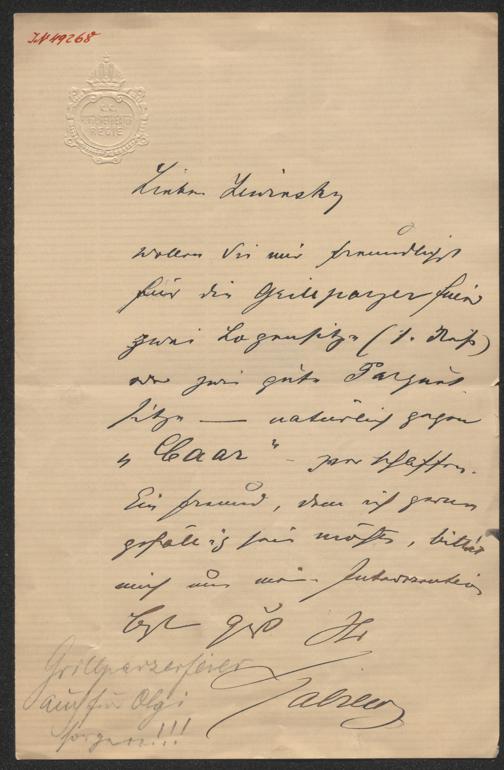 IN 49268
K.K.
HOFBURGTHEATER
REGIE
Lieber Lewinsky
wollen Sie mir freundlichst
für die Grillparzer feier
zwei Logensitze (1. Rang)
oder zwei gute Parquet
sitze — natürlich gegen
"Baar" – verschaffen.
Ein Freund, dem ich gerne
gefällig sein möchte, bittet
mich um meine Intervention
Bst grßt Ihr
Grillparzerfeier
auch für Olgi
sorgen!!!